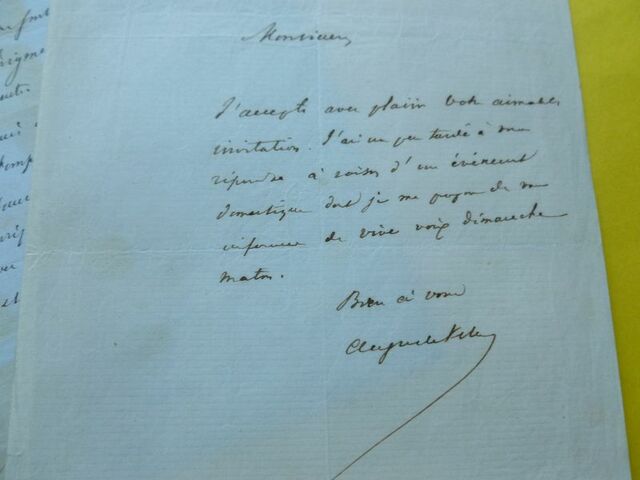 Monsieur,
J'accepte avec plaisir votre aimable
invitation. J'ai un peu tardé à
répondre à raison d'un évènement
domestique dont je me propose de
informer de vive voix dimanche
matin.
Bien à vous